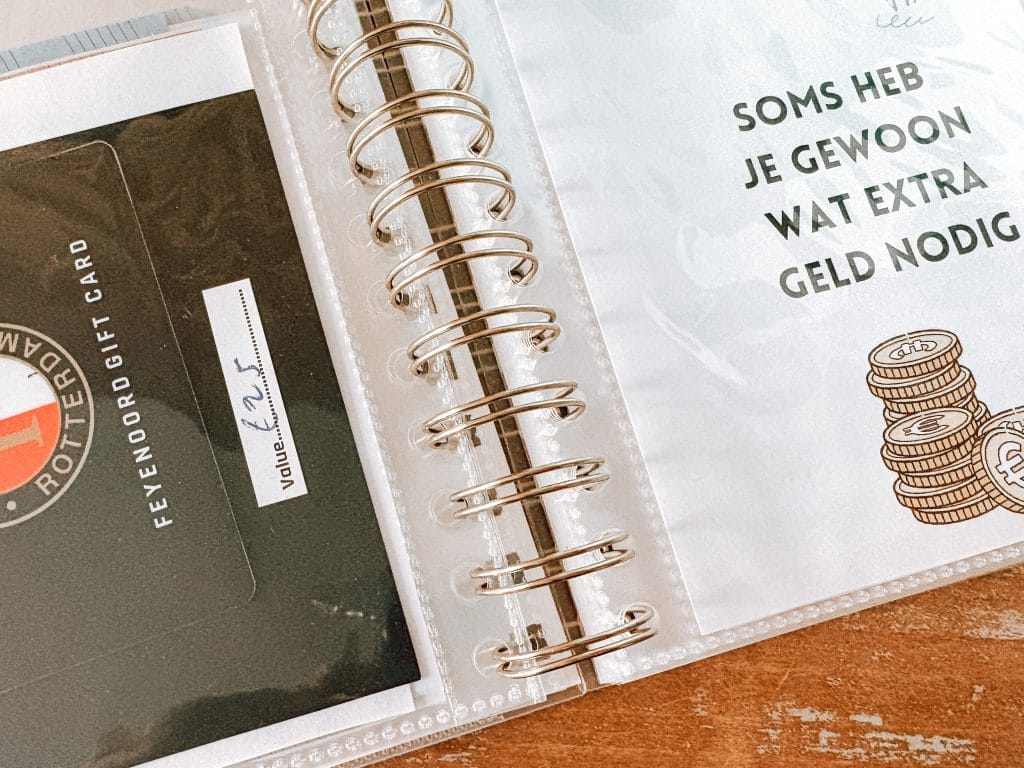 FEYENOORD GIFT CARD
ROTTERDAM
Value
€25
SOMS HEB
JE GEWOON
WAT EXTRA
GELD NODIG